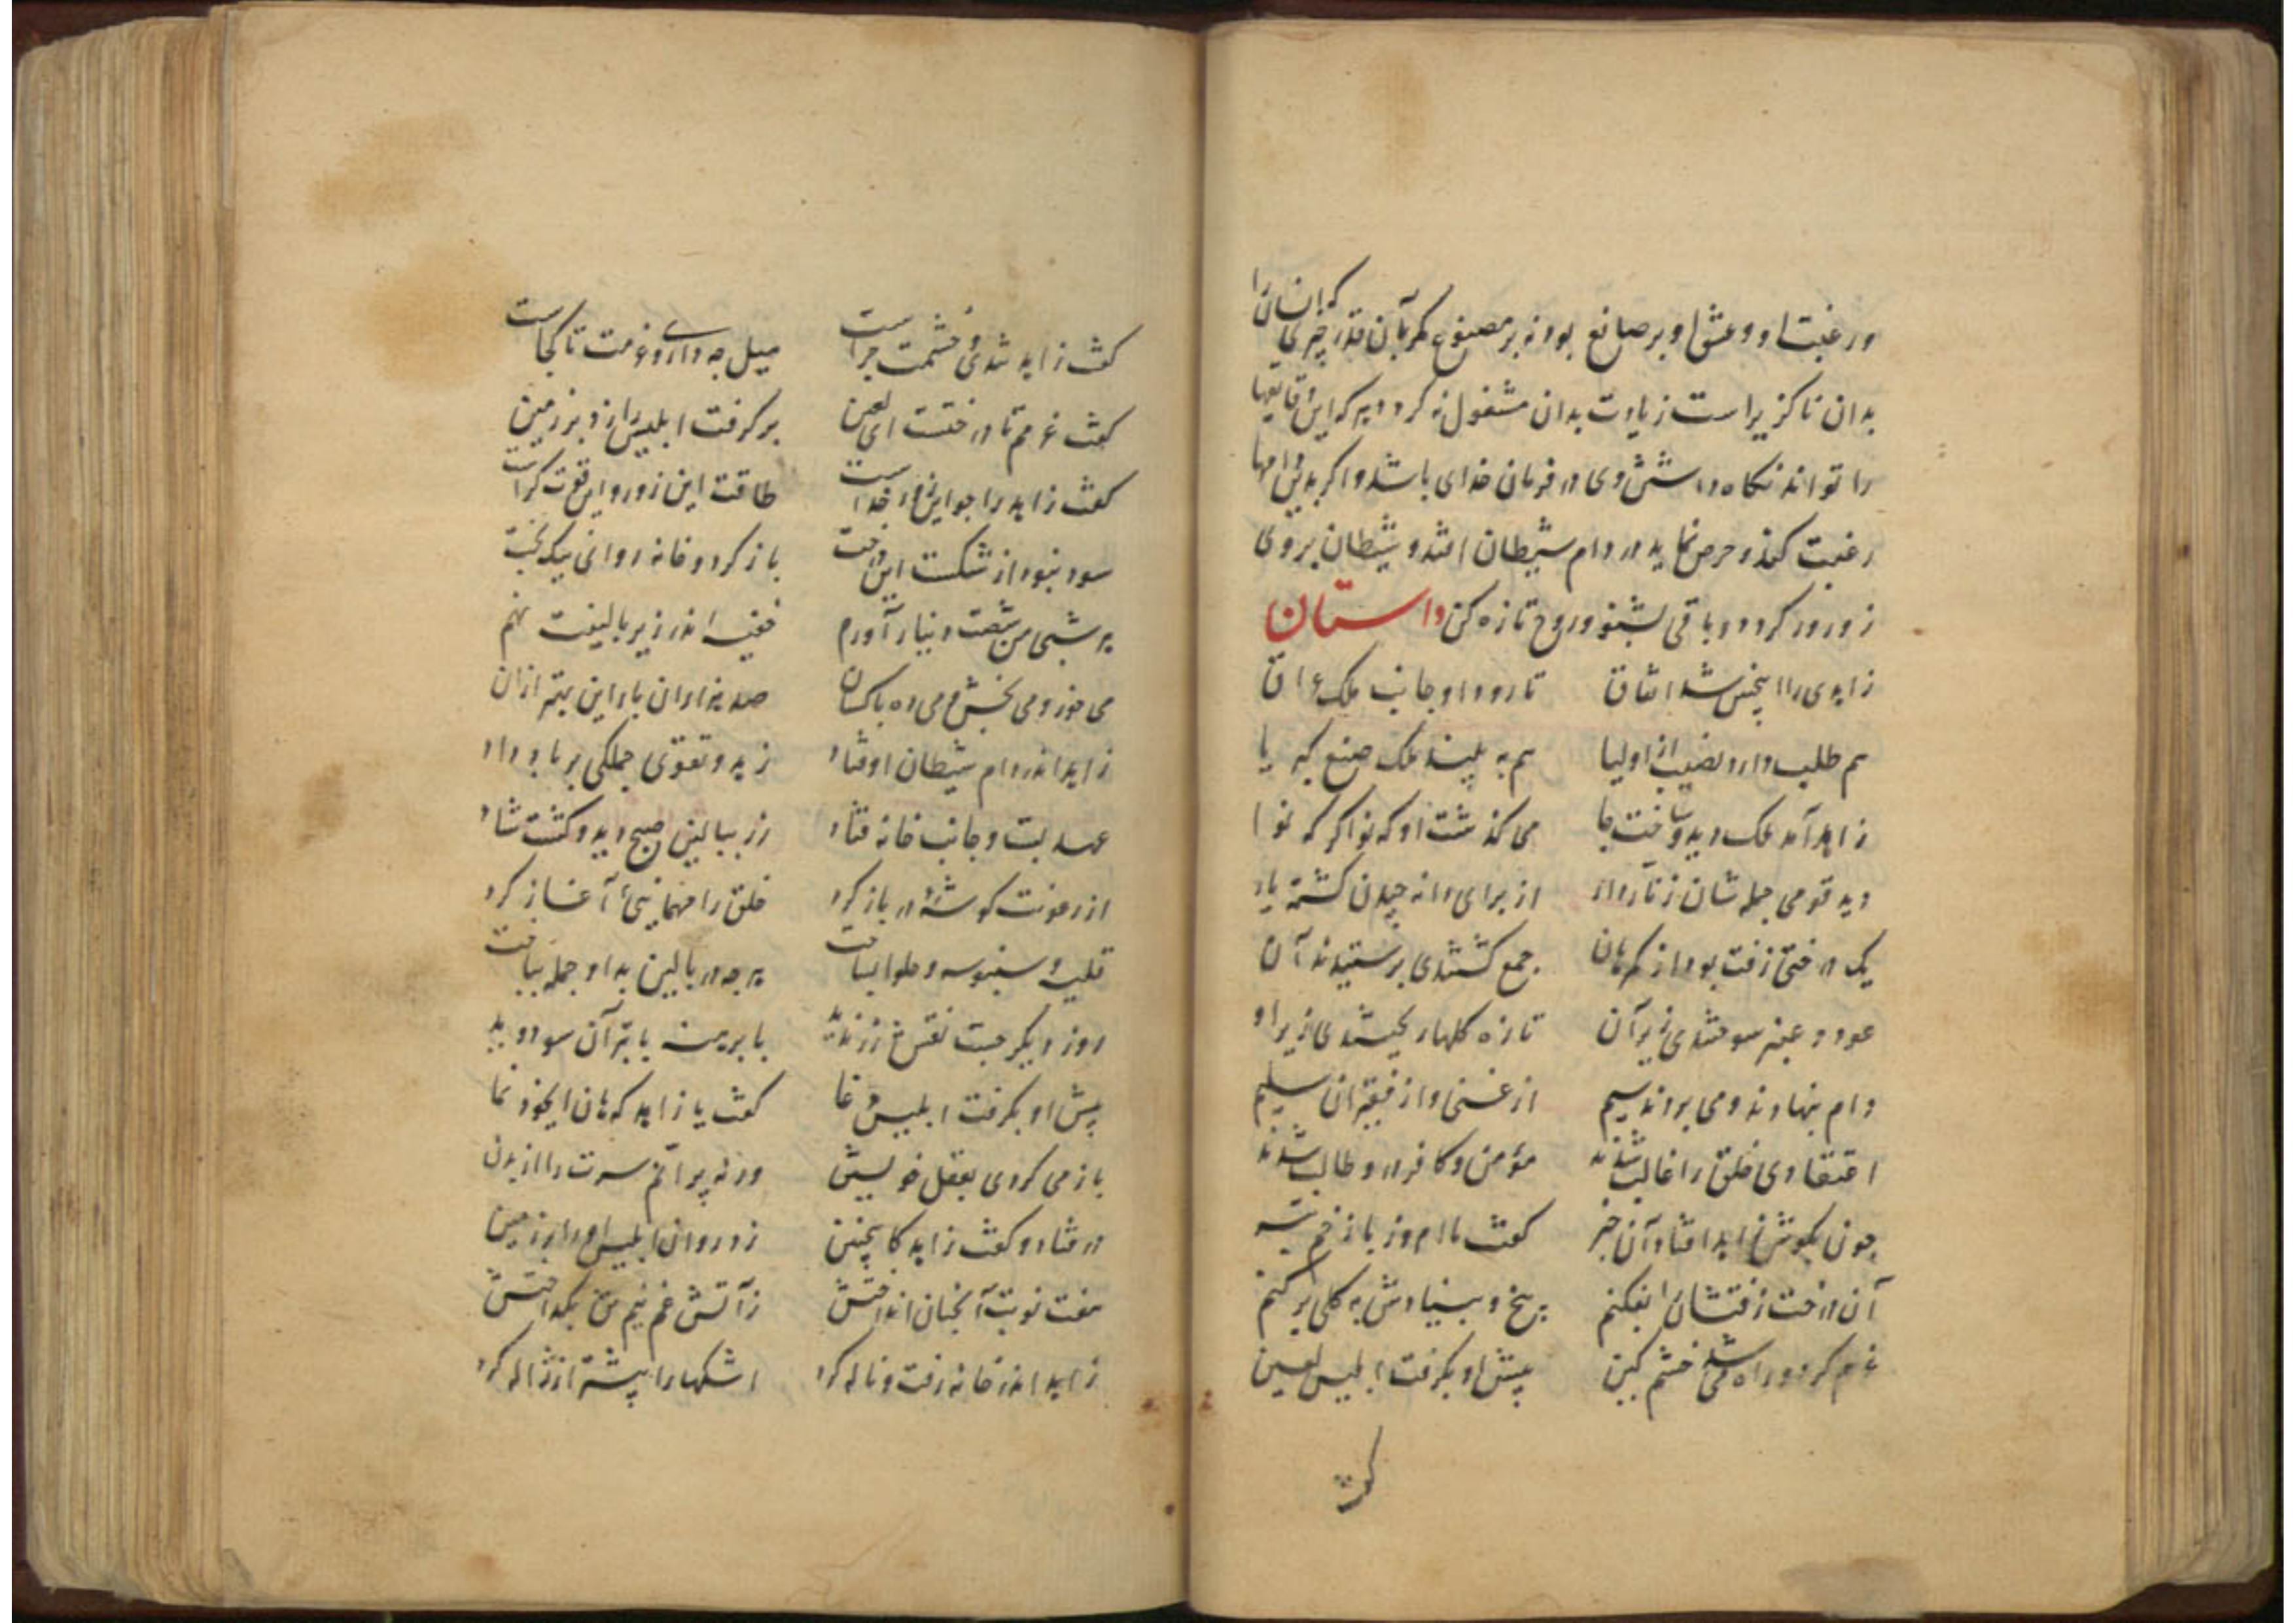 ورغبت او و عشق او بر صانع بود نه بر مصنوع مگر بآن قدر چیزی که انسان را
بدان ناگزیر است زیادت بدان مشغول نگردد هر که این
را تواند نگاه داشتن وی در فرمان خدای باشد و اگر
رغبت کند و حرص نماید در دام شیطان افتد و شیطان بر وی
زورور گردد و باقی بشنو و روح تازه کن داستان
زاهدی را اینچنین شد اتفاق تا رود او جانب ملک عراق
هم طلب دارد نصیب از اولیا هم به بیند ملک صنع کبریا
زاهد آمد ملک دید و ساخت جا می گذشت او
دید قومی جمله شان زنار دار از برای دانه چیدن گشته یار
یک درختی زفت بود از گمرهان جمع گشتندی پرستیدند آن
عود و عنبر سوختندی زیر آن تازه گلها ریختندی زیر او
دام بنهادند و می بردند سیم از غنی و از فقیران سلیم
اعتقادی خلق را غالب شدند مؤمن و کافر درو طالب شدند
چون بگوش زاهد افتاد آن خبر گفت ما امروز با زخم تبر
آن درخت زفتشان را بفکنم بیخ و بنیادش به کلی بر کنم
عزم کرد و در راه شد خشم گین پیش او بگرفت ابلیس لعین
گفت
گفت زاهد شدی و خشمت چراست میل چه داری و عزمت تا کجاست
گفت عزمم تا درختست ای لعین بر گرفت ابلیس را زد بر زمین
گفت زاهد را جو این زور از خداست طاقت این زور و این قوت کراست
سود نبود از شکست این درخت باز گرد و خانه رو ای نیکبخت
هر شبی من شصت دینار آورم خفیه اندر زیر بالینت نهم
می خور و می بخش و می ده با کسان صد هزاران بار این بهتر از آن
زاهد اندر دام شیطان اوفتاد زهد و تقوی جملگی بر باد داد
عهد بست و جانب خانه فتاد زر ببالین صبح دید و گشت شاد
از رعونت گوشهٔ در باز کرد خلق را مهمانیی آغاز کرد
قلیه و سنبوسه و حلوا بساخت هر چه در بالین بد او جمله بباخت
روز دیگر جست نقش زر ندید با برهنه با تبر آن سو دوید
پیش او بگرفت ابلیس دغا گفت یا زاهد که هان اینجا در نما
باز می گردی بعقل خویشتن ورنه پرانم سرت را از بدن
در فتاد و گفت زاهد کاینچنین زد روان ابلیس او را بر زمین
هفت نوبت آنچنان انداختش ز آتش غم نیم تن بگداختش
زاهد اندر خانه رفت و ناله کرد اشکها را بیشتر از ژاله کرد